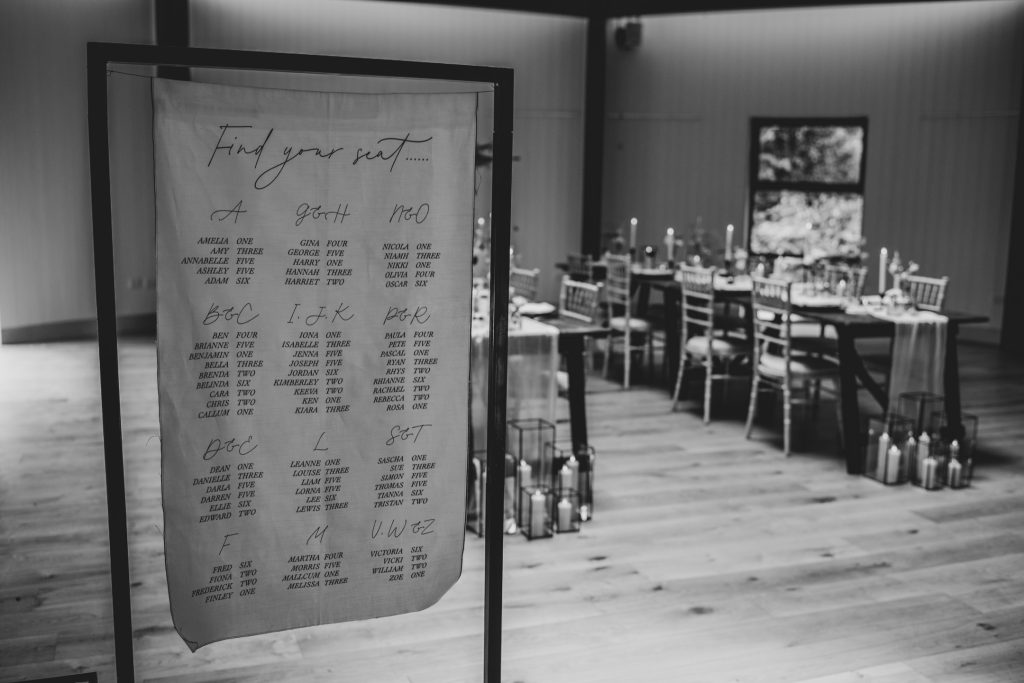 Find your seat......
A
AMELIA ONE
AMY THREE
ANNABELLE FIVE
ASHLEY FIVE
ADAM SIX
B&C
BEN FOUR
BRIANNE FIVE
BENJAMIN ONE
BELLA THREE
BRENDA TWO
BELINDA SIX
CARA TWO
CHRIS TWO
CALLUM ONE
D&E
DEAN ONE
DANIELLE THREE
DARLA FIVE
DARREN FIVE
ELLIE SIX
EDWARD TWO
F
FRED SIX
FIONA TWO
FREDERICK TWO
FINLEY ONE
G&H
GINA FOUR
GEORGE FIVE
HARRY ONE
HANNAH THREE
HARRIET TWO
I.J.K
IONA ONE
ISABELLE THREE
JENNA FIVE
JOSEPH FIVE
JORDAN SIX
KIMBERLEY TWO
KEEVA TWO
KEN ONE
KIARA THREE
L
LEANNE ONE
LOUISE THREE
LIAM FIVE
LORNA FIVE
LEE SIX
LEWIS THREE
M
MARTHA FOUR
MORRIS FIVE
MALLCUM ONE
MELISSA THREE
N&O
NICOLA ONE
NIAMH THREE
NIKKI ONE
OLIVIA FOUR
OSCAR SIX
P&R
PAULA FOUR
PETE FIVE
PASCAL ONE
RYAN THREE
RHYS TWO
RHIANNE SIX
RACHAEL TWO
REBECCA TWO
ROSA ONE
S&T
SASCHA ONE
SUE THREE
SIMON FIVE
THOMAS FIVE
TIANNA SIX
TRISTAN TWO
V.W&Z
VICTORIA SIX
VICKI TWO
WILLIAM TWO
ZOE ONE